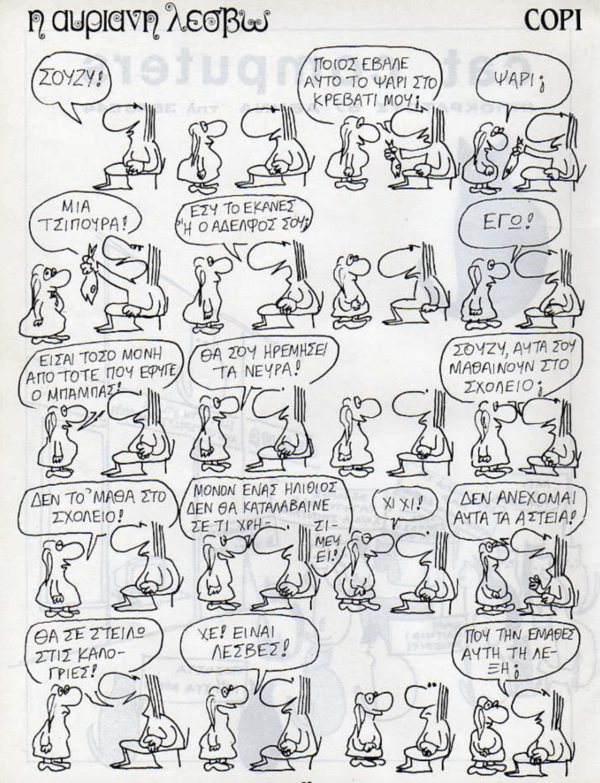 η αυριανη λεσβω
COPI
ΣΟΥΖΥ!
ΠΟΙΟΣ ΕΒΑΛΕ
ΑΥΤΟ ΤΟ ΨΑΡΙ ΣΤΟ
ΚΡΕΒΑΤΙ ΜΟΥ;
ΨΑΡΙ;
ΜΙΑ
ΤΣΙΠΟΥΡΑ!
ΕΣΥ ΤΟ ΕΚΑΝΕΣ
Ή Ο ΑΔΕΛΦΟΣ ΣΟΥ;
ΕΓΩ!
ΕΙΣΑΙ ΤΟΣΟ ΜΟΝΗ
ΑΠΟ ΤΟΤΕ ΠΟΥ ΕΦΥΓΕ
Ο ΜΠΑΜΠΑΣ!
ΘΑ ΣΟΥ ΗΡΕΜΗΣΕΙ
ΤΑ ΝΕΥΡΑ!
ΣΟΥΖΥ, ΑΥΤΑ ΣΟΥ
ΜΑΘΑΙΝΟΥΝ ΣΤΟ
ΣΧΟΛΕΙΟ;
ΔΕΝ ΤΟ ΜΑΘΑ ΣΤΟ
ΣΧΟΛΕΙΟ!
ΜΟΝΟΝ ΕΝΑΣ ΗΛΙΘΙΟΣ
ΔΕΝ ΘΑ ΚΑΤΑΛΑΒΑΙΝΕ
ΣΕ ΤΙ ΧΡΗ-
ΣΙ-
ΜΕΥ
ΕΙ!
ΧΙ ΧΙ!
ΔΕΝ ΑΝΕΧΟΜΑΙ
ΑΥΤΑ ΤΑ ΑΣΤΕΙΑ!
ΘΑ ΣΕ ΣΤΕΙΛΩ
ΣΤΙΣ ΚΑΛΟ-
ΓΡΙΕΣ!
ΧΕ! ΕΙΝΑΙ
ΛΕΣΒΕΣ!
ΠΟΥ ΤΗΝ ΕΜΑΘΕΣ
ΑΥΤΗ ΤΗ ΛΕ-
ΞΗ;